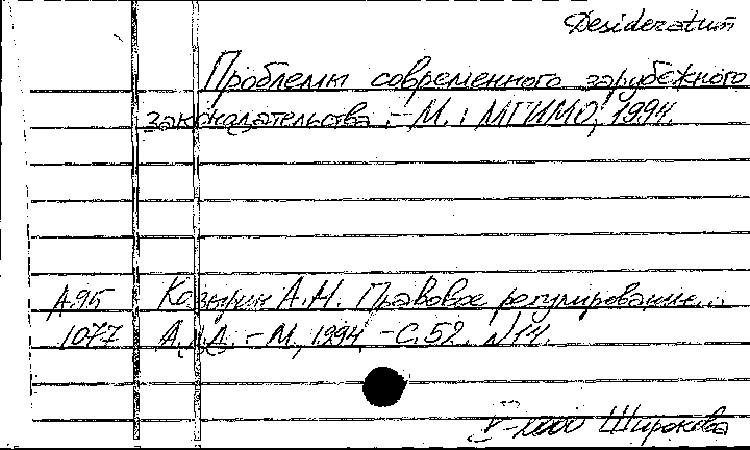 Desideratum
Проблемы современного зарубежного
законодательства. – М.: МГИМО, 1994.
А95 Козырин А.Н. Правовое регулирование...
1077 А.Д.Д. – М., 1994 – С.52. N14.
V-2000 Широкова